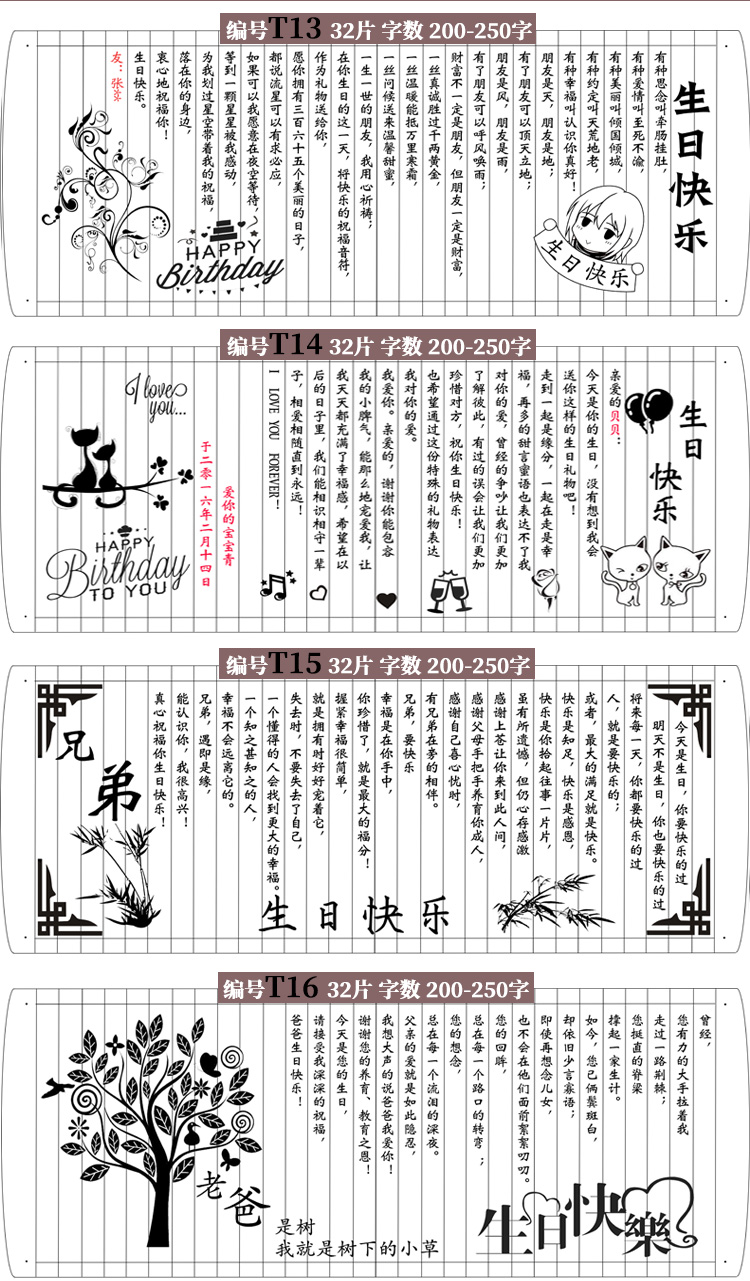 编号T13 32片 字数 200-250字
生日快乐
有种思念叫牵肠挂肚，
有种爱情叫至死不渝，
有种美丽叫倾国倾城，
有种约定叫天荒地老，
有种幸福叫认识你真好！
朋友是天，朋友是地；
有了朋友可以顶天立地；
朋友是风，朋友是雨，
有了朋友可以呼风唤雨；
财富不一定是朋友，但朋友一定是财富，
一丝真诚胜过千两黄金，
一丝温暖能抵万里寒霜，
一丝问候送来温馨甜蜜，
一生一世的朋友，我用心祈祷；
在你生日的这一天，将快乐的祝福音符，
作为礼物送给你，
愿你拥有三百六十五个美丽的日子，
都说流星可以有求必应，
如果可以我愿意在夜空等待，
等到一颗星星被我感动，
为我划过星空带着我的祝福，
落在你的身边，
衷心地祝福你！
生日快乐。
友：张
生日快乐
HAPPY
Birthday
编号T14 32片 字数 200-250字
生日
快乐
亲爱的贝贝：
今天是你的生日，没有想到我会
送你这样的生日礼物吧！
走到一起是缘分，一起在走是幸
福，再多的甜言蜜语也表达不了我
对你的爱，曾经的争吵让我们更加
了解彼此，有过的误会让我们更加
珍惜对方，祝你生日快乐！
也希望通过这份特殊的礼物表达
我对你的爱。
我爱你。亲爱的，谢谢你能包容
我的小脾气，能那么地宠爱我，让
我天天都充满了幸福感，希望在以
后的日子里，我们能相识相守一辈
子，相爱相随直到永远！
I LOVE YOU FOREVER!
爱你的宝宝青
于二零一六年二月十四日
I love
you...
HAPPY
Birthday
TO YOU
编号T15 32片 字数 200-250字
今天是生日，你要快乐的过
明天不是生日，你也要快乐的过
将来每一天，你都要快乐的过
人，就是要快乐的；
或者，最大的满足就是快乐。
快乐是知足，快乐是感恩，
快乐是你拾起往事一片片，
虽有所遗憾，但仍心存感激
感谢上苍让你来到此人间，
感谢父母手把手养育你成人，
感谢自己喜心忧时，
有兄弟在旁的相伴。
兄弟，要快乐
幸福是在你手中，
你珍惜了，就是最大的福分！
握紧幸福很简单，
就是拥有时好好宠着它，
失去时，不要失去了自己，
一个懂得的人会找到更大的幸福。
一个知之甚知之的人，
幸福不会远离它的。
兄弟，遇即是缘，
能认识你，我很高兴！
真心祝福你生日快乐！
兄弟
生日快乐
编号T16 32片 字数 200-250字
曾经，
您有力的大手拉着我
走过一路荆棘；
您挺直的脊梁
撑起一家生计。
如今，您已俩鬓斑白，
却依旧少言寡语；
即使再想念儿女，
也不会在他们面前絮絮叨叨。
您的回眸，
总在每一个路口的转弯；
您的想念，
总在每一个流泪的深夜。
父亲的爱就是如此隐忍，
我想大声的说爸爸我爱你！
谢谢您的养育、教育之恩！
今天是您的生日，
请接受我深深的祝福，
爸爸生日快乐！
老爸
是树
我就是树下的小草
生日快樂